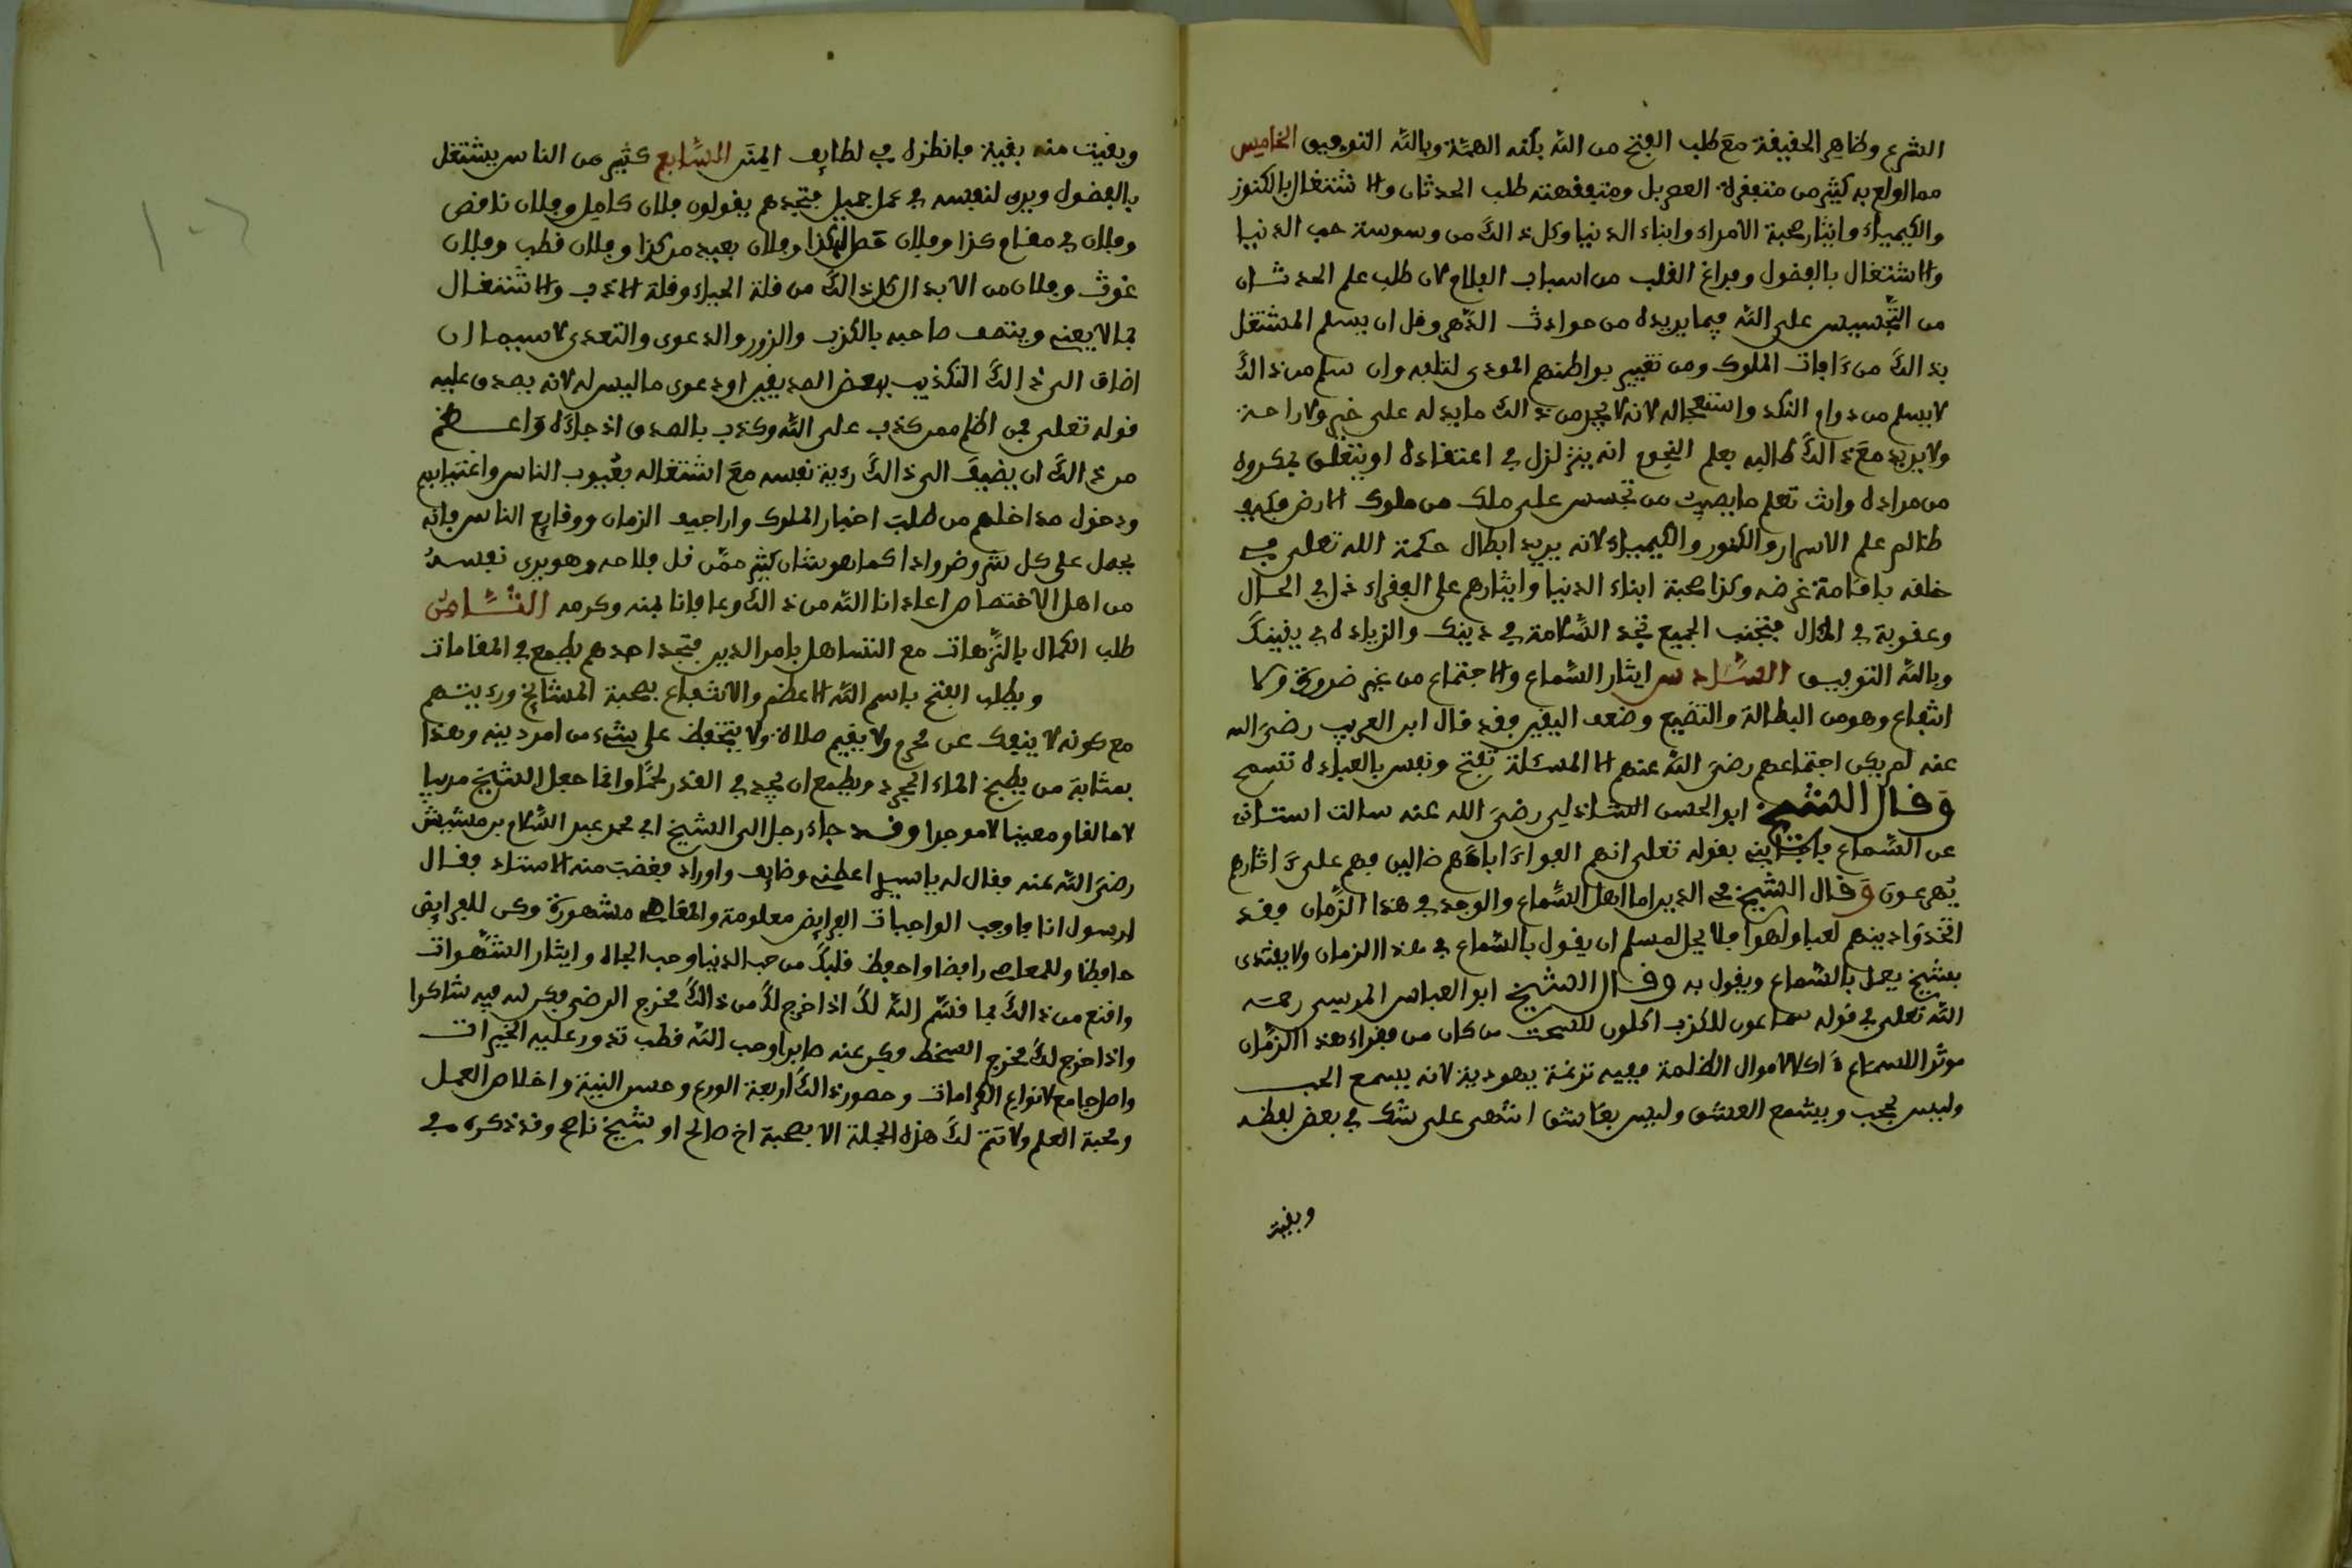 الشرع وظاهر الحقيقة مع طلب الفتح من الله بكنه الهمّة وبالله التوفيق الخامس
مما اولع به كثير من متفقرة العصر بل ومتفقهته طلب الحدثان والاشتغال بالكنوز
والكيمياء وايثار صحبة الامراء وابناء الدنيا وكل ذالك من وسوسة حب الدنيا
والاشتغال بالفضول وفراغ القلب من اسباب الفلاح لان طلب علم الحدثان
من التجسيس على الله فيما يريده من حوادث الدهر وقل ان يسلم المشتغل
بذالك من ءافات الملوك ومن تغيير بواطنهم المودى لتلفه وان سلم من ذالك
لا يسلم من دوام النكد واستعجاله لانه لا يجد من ذالك ما يدله على خير ولا راحة
ولا يزيد مع ذالك طالبه بعلم النجوم انه يتزلزل في اعتقاده او يتعلق بمكروه
من مراده وانت تعلم ما يصيب من تجسس على ملك من ملوك الارض فكيف
طالب علم الاسرار والكنوز والكيمياء لانه يريد ابطال حكمة الله تعلى في
خلقه باقامة غرضه وكذا صحبة ابناء الدنيا وايثارهم على الفقراء ذل في الحال
وعقوبة في المئال فتجنب الجميع تجد السّلامة في دينك والزيادة في يقينك
وبالله التوفيق السّادس ايثار السّماع والاجتماع من غير ضرورة ولا
انتفاع وهو من البطالة والتضييع وضعف اليقين وقد قال ابن العريف رضي الله
عنه لم يكن اجتماعهم رضي الله عنهم الا لمسئلة تفتح ونفس بالعبادة تسمح
وقال الشيخ ابو الحسن الشاذلي رضي الله عنه سالت استاذي
عن السّماع فاجابني بقوله تعلى انهم الفوا ءاباءهم ضالين فهم على ءاثارهم
يُهرعون وقال الشيخ محي الدين اما اهل السّماع والوجد في هذا الزّمان فقد
اتخذوا دينهم لعبا ولهوا فلا يحل لمسلم ان يقول بالسّماع في هذا الزمان ولا يقتدى
بشيخ يعمل بالسّماع ويقول به وقال الشيخ ابو العباس المرسي رحمه
الله تعلى في قوله سماعون للكذب اكلون للسحت من كان من فقراء هذا الزمان
موثرا للسماع ءاكلا لاموال الظلمة ففيه نزغة يهودية لانه يسمع الحب
وليس بمحب ويسمع العشق وليس بعاشق انتهى على شك في بعض لفظه
وبقية
وبقيت منه بقية فانظره في لطايف المِنَن السّابع كثير من الناس يشتغل
بالفضول ويرى لنفسه في عمل جميل فتجدهم يقولون فلان كامل وفلان ناقص
وفلان في مقام كذا وفلان حصل له كذا وفلان بعيد من كذا وفلان قطب وفلان
غوث وفلان من الابدال كل ذالك من قلة الحياء وقلة الادب والاشتغال
بما لا يعنيه ويتصف صاحبه بالكذب والزور والدعوى والتعدى لا سيما ان
اضاف الى ذالك التكذيب ببعض الصديقين او دعوى ما ليس له لانه يصدق عليه
قوله تعلى فمن اظلم ممن كذب على الله وكذب بالصدق اذ جاءه واعظم
من ذالك ان يضيف الى ذالك رءية نفسه مع اشتغاله بعُيوب الناس واغتيابهم
ودخول مداخلهم من طلب اخبار الملوك واراجيف الزمان ووقايع الناس فانه
يحصل على كل شر وضر وادا كما هو شان كثير ممّن قل فلاحه وهو يرى نفسه
من اهل الاختصاص اعاذنا الله من ذالك وعافانا بمنه وكرمه الثّامن
طلب الكمال بالتّرهات مع التساهل بامر الدين فتجد احدهم يطمع في المقامات
ويطلب الفتح باسم الله الاعظم والانتفاع بصحبة المشايخ ورءيتهم
مع كونه لا ينفك عن محرم ولا يقيم صلاة ولا يتحفظ على شيء من امر دينه وهذا
بمثابة من يطبخ الماء المجرد ويطمع ان يجد في القدر لحمًا وانما جعل الشيخ مربيا
لا خالقا ومعينا لا موجدا وقد جاء رجل الى الشيخ ابي محمد عبد السّلام بن مشيش
رضي الله عنه فقال له يا سيدي اعطني وظايف واوراد فغضب منه الاستاذ وقال
ارسول انا فاوجب الواجبات الفرايض معلومة والمعاصي مشهورة وكن للفرايض
حافظا وللمعاصي رافضا واحفظ قلبك من حب الدنيا وحب الجاه وايثار الشّهوات
واقنع من ذالك بما قسّم الله لك اذا خرج لك من ذالك مخرج الرضى فكن لله فيه شاكرا
واذا خرج لك مخرج السخط فكن عنه صابرا وحب الله قطب تدور عليه الخيرات
واصل جامع لانواع الكرامات وحصون ذالك اربعة الورع وحسن النية واخلاص العمل
ومحبة العلم ولا تتم لك هذه الجملة الا بصحبة اخ صالح او شيخ ناصح وقد ذكره في